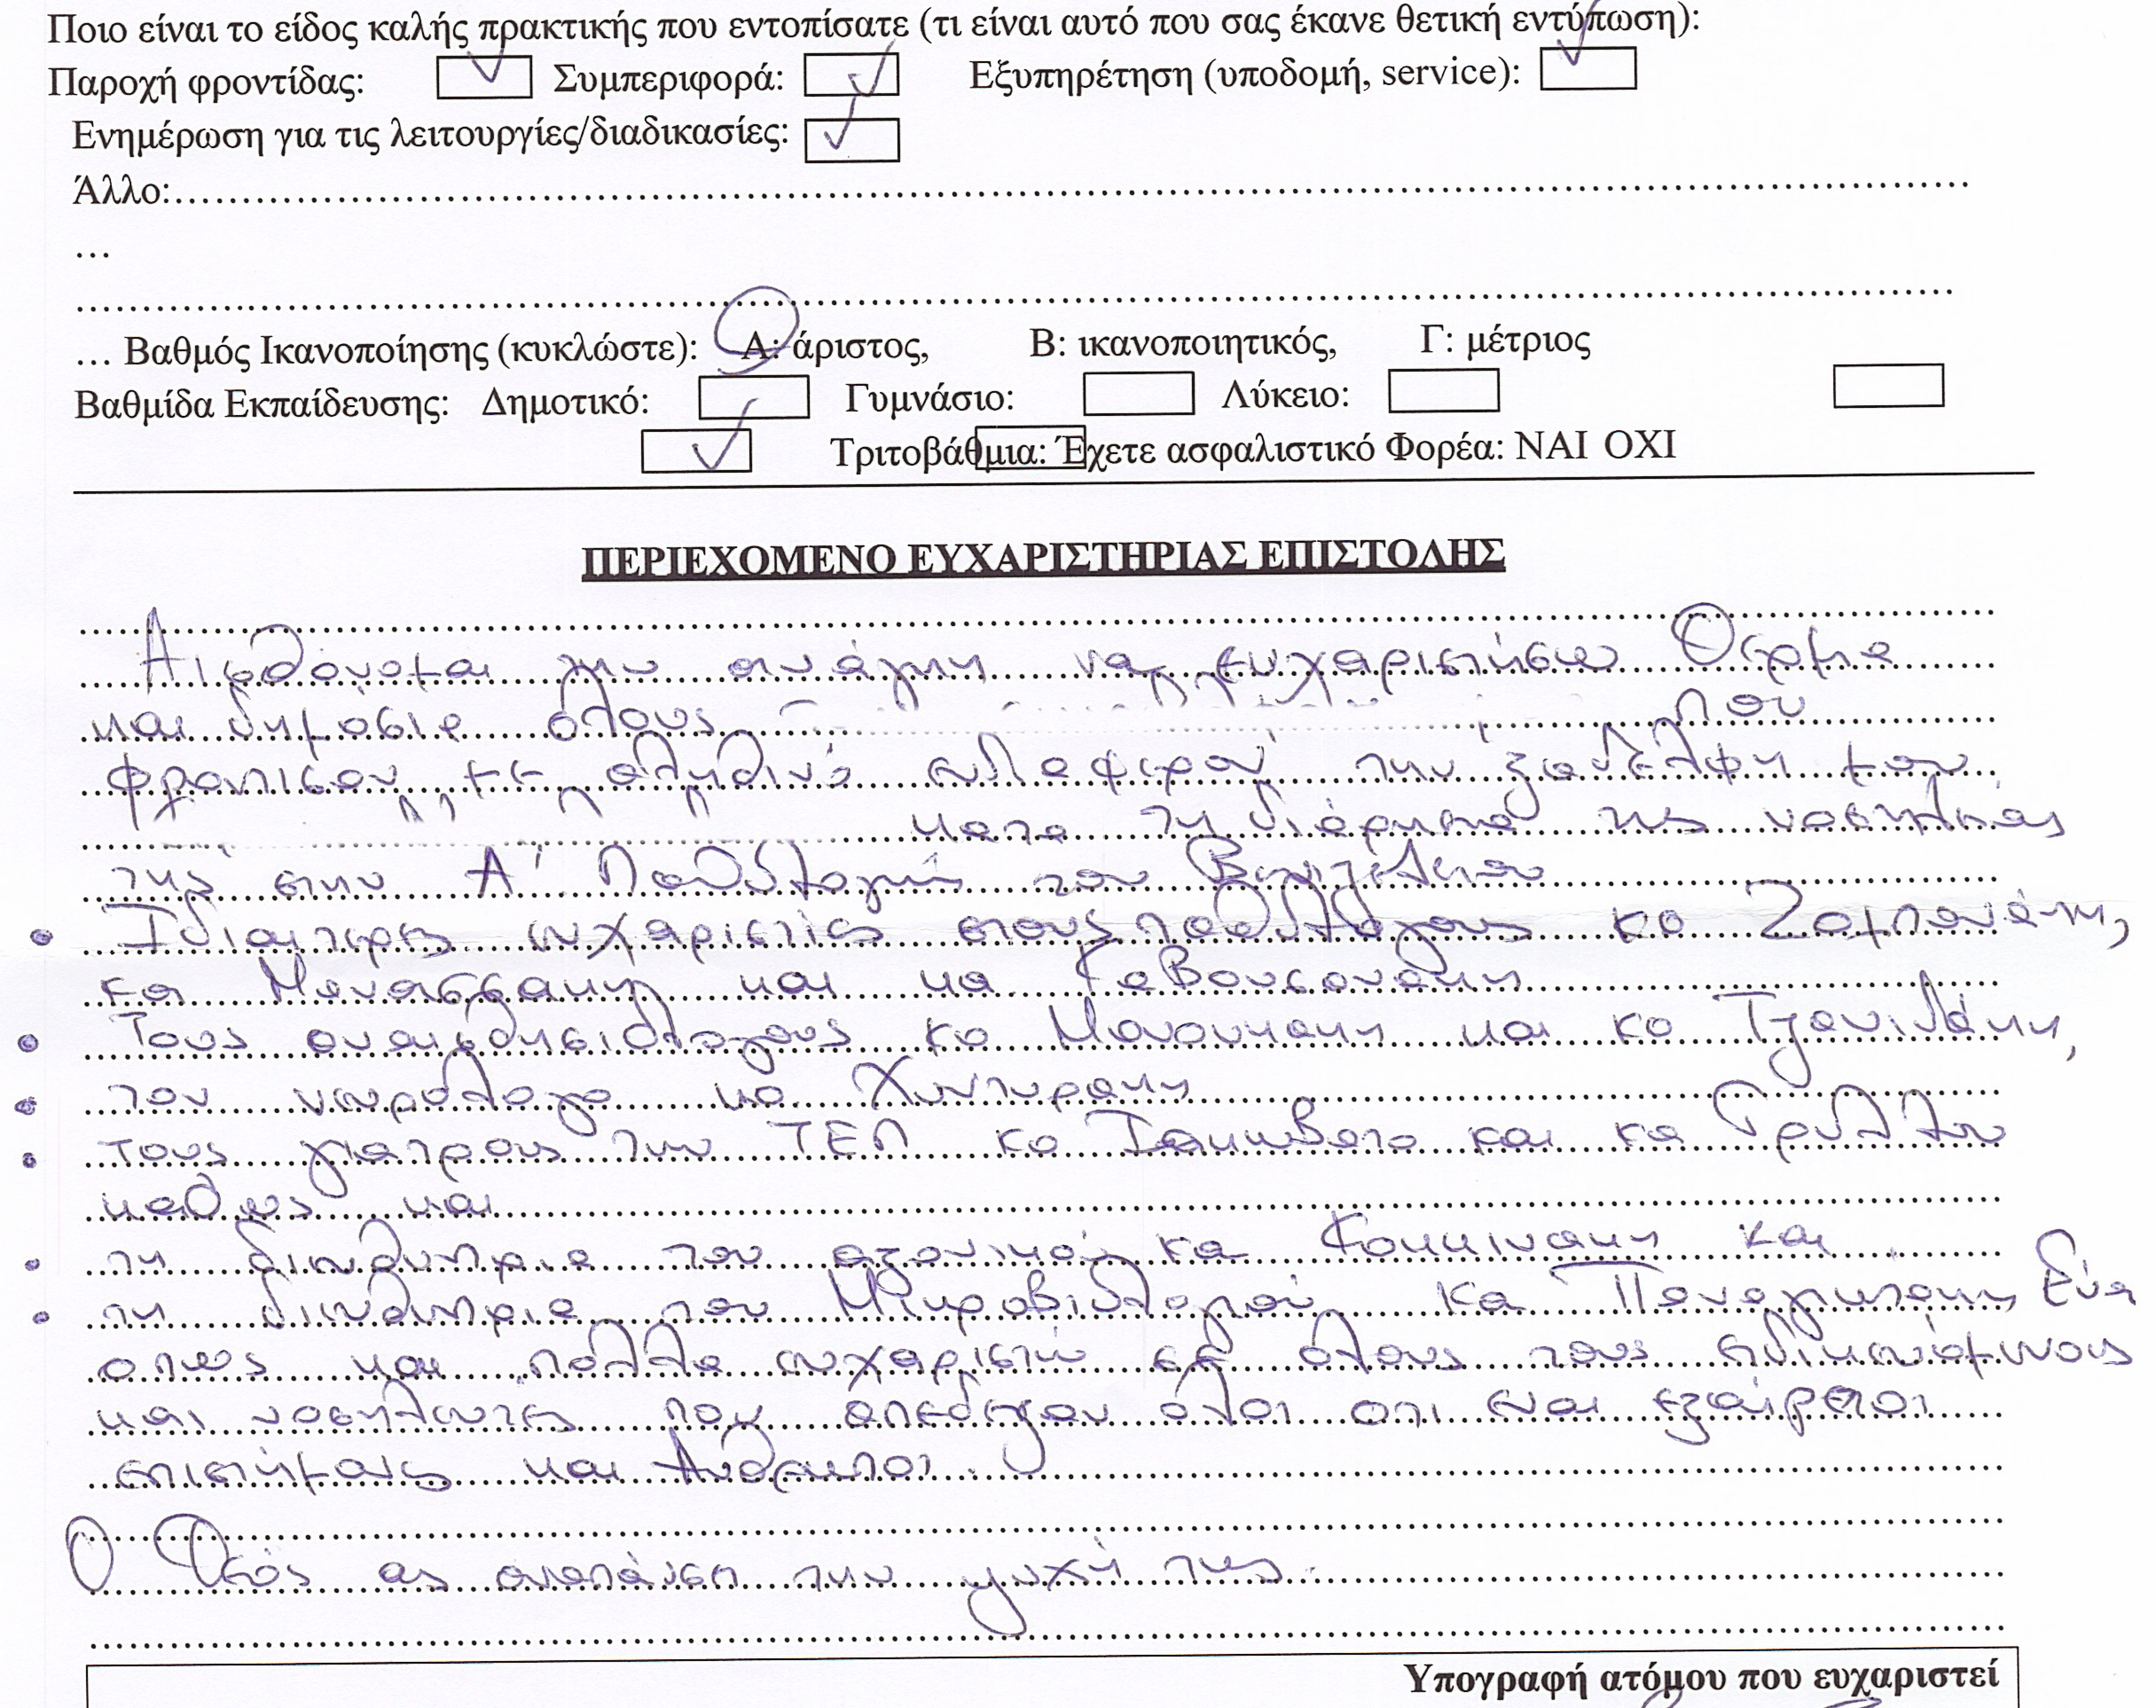 Ποιο είναι το είδος καλής πρακτικής που εντοπίσατε (τι είναι αυτό που σας έκανε θετική εντύπωση):
Παροχή φροντίδας: Συμπεριφορά: Εξυπηρέτηση (υποδομή, service):
Ενημέρωση για τις λειτουργίες/διαδικασίες:
Άλλο:........................................................................
...
........................................................................
... Βαθμός Ικανοποίησης (κυκλώστε): Α: άριστος, Β: ικανοποιητικός, Γ: μέτριος
Βαθμίδα Εκπαίδευσης: Δημοτικό: Γυμνάσιο: Λύκειο:
Τριτοβάθμια: Έχετε ασφαλιστικό Φορέα: ΝΑΙ ΟΧΙ
ΠΕΡΙΕΧΟΜΕΝΟ ΕΥΧΑΡΙΣΤΗΡΙΑΣ ΕΠΙΣΤΟΛΗΣ
Αισθάνομαι την ανάγκη να ευχαριστήσω θερμα
και δημόσια όλους που
φροντισαν με αληθινό ενδιαφερον την ξαδέλφη μου
κατα τη διάρκεια της νοσηλείας
της στην Α' Παθολογική του Βενιζέλειου
• Ιδιαιτερες ευχαριστίες στους παθολόγους κο Ζαμπουάκη,
κα Μανασσακη και κα Καβουσανακη
• Τους αναισθησιολογους κο Μανουκακη και κο Τζανιδάκη,
• τον νευρολογο κο
• τους γιατρους των ΤΕΠ κο Ιακωβατο και κα Γρύλλου
καθως και
• τη διευθυντρια του αξονικού κα Κοκκινακη και
• τη διευθυντρια του Μικροβιολογικού κα Παναγιωτακη Εύα
οπως και πολλα ευχαριστώ σε όλους τους ειδικευόμενους
και νοσηλευτες που απεδειξαν όλοι οτι ειναι εξαίρετοι
επιστήμονες και Ανθρωποι.
Ο Θεός ας αναπαύσει την ψυχή της.
Υπογραφή ατόμου που ευχαριστεί